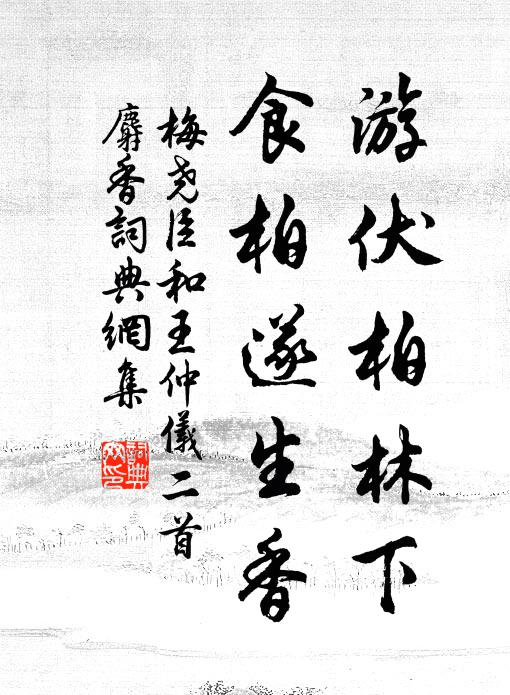 游伏柏林下
食柏遂生香
梅尧臣和王仲儀二首
麝香詞典網集